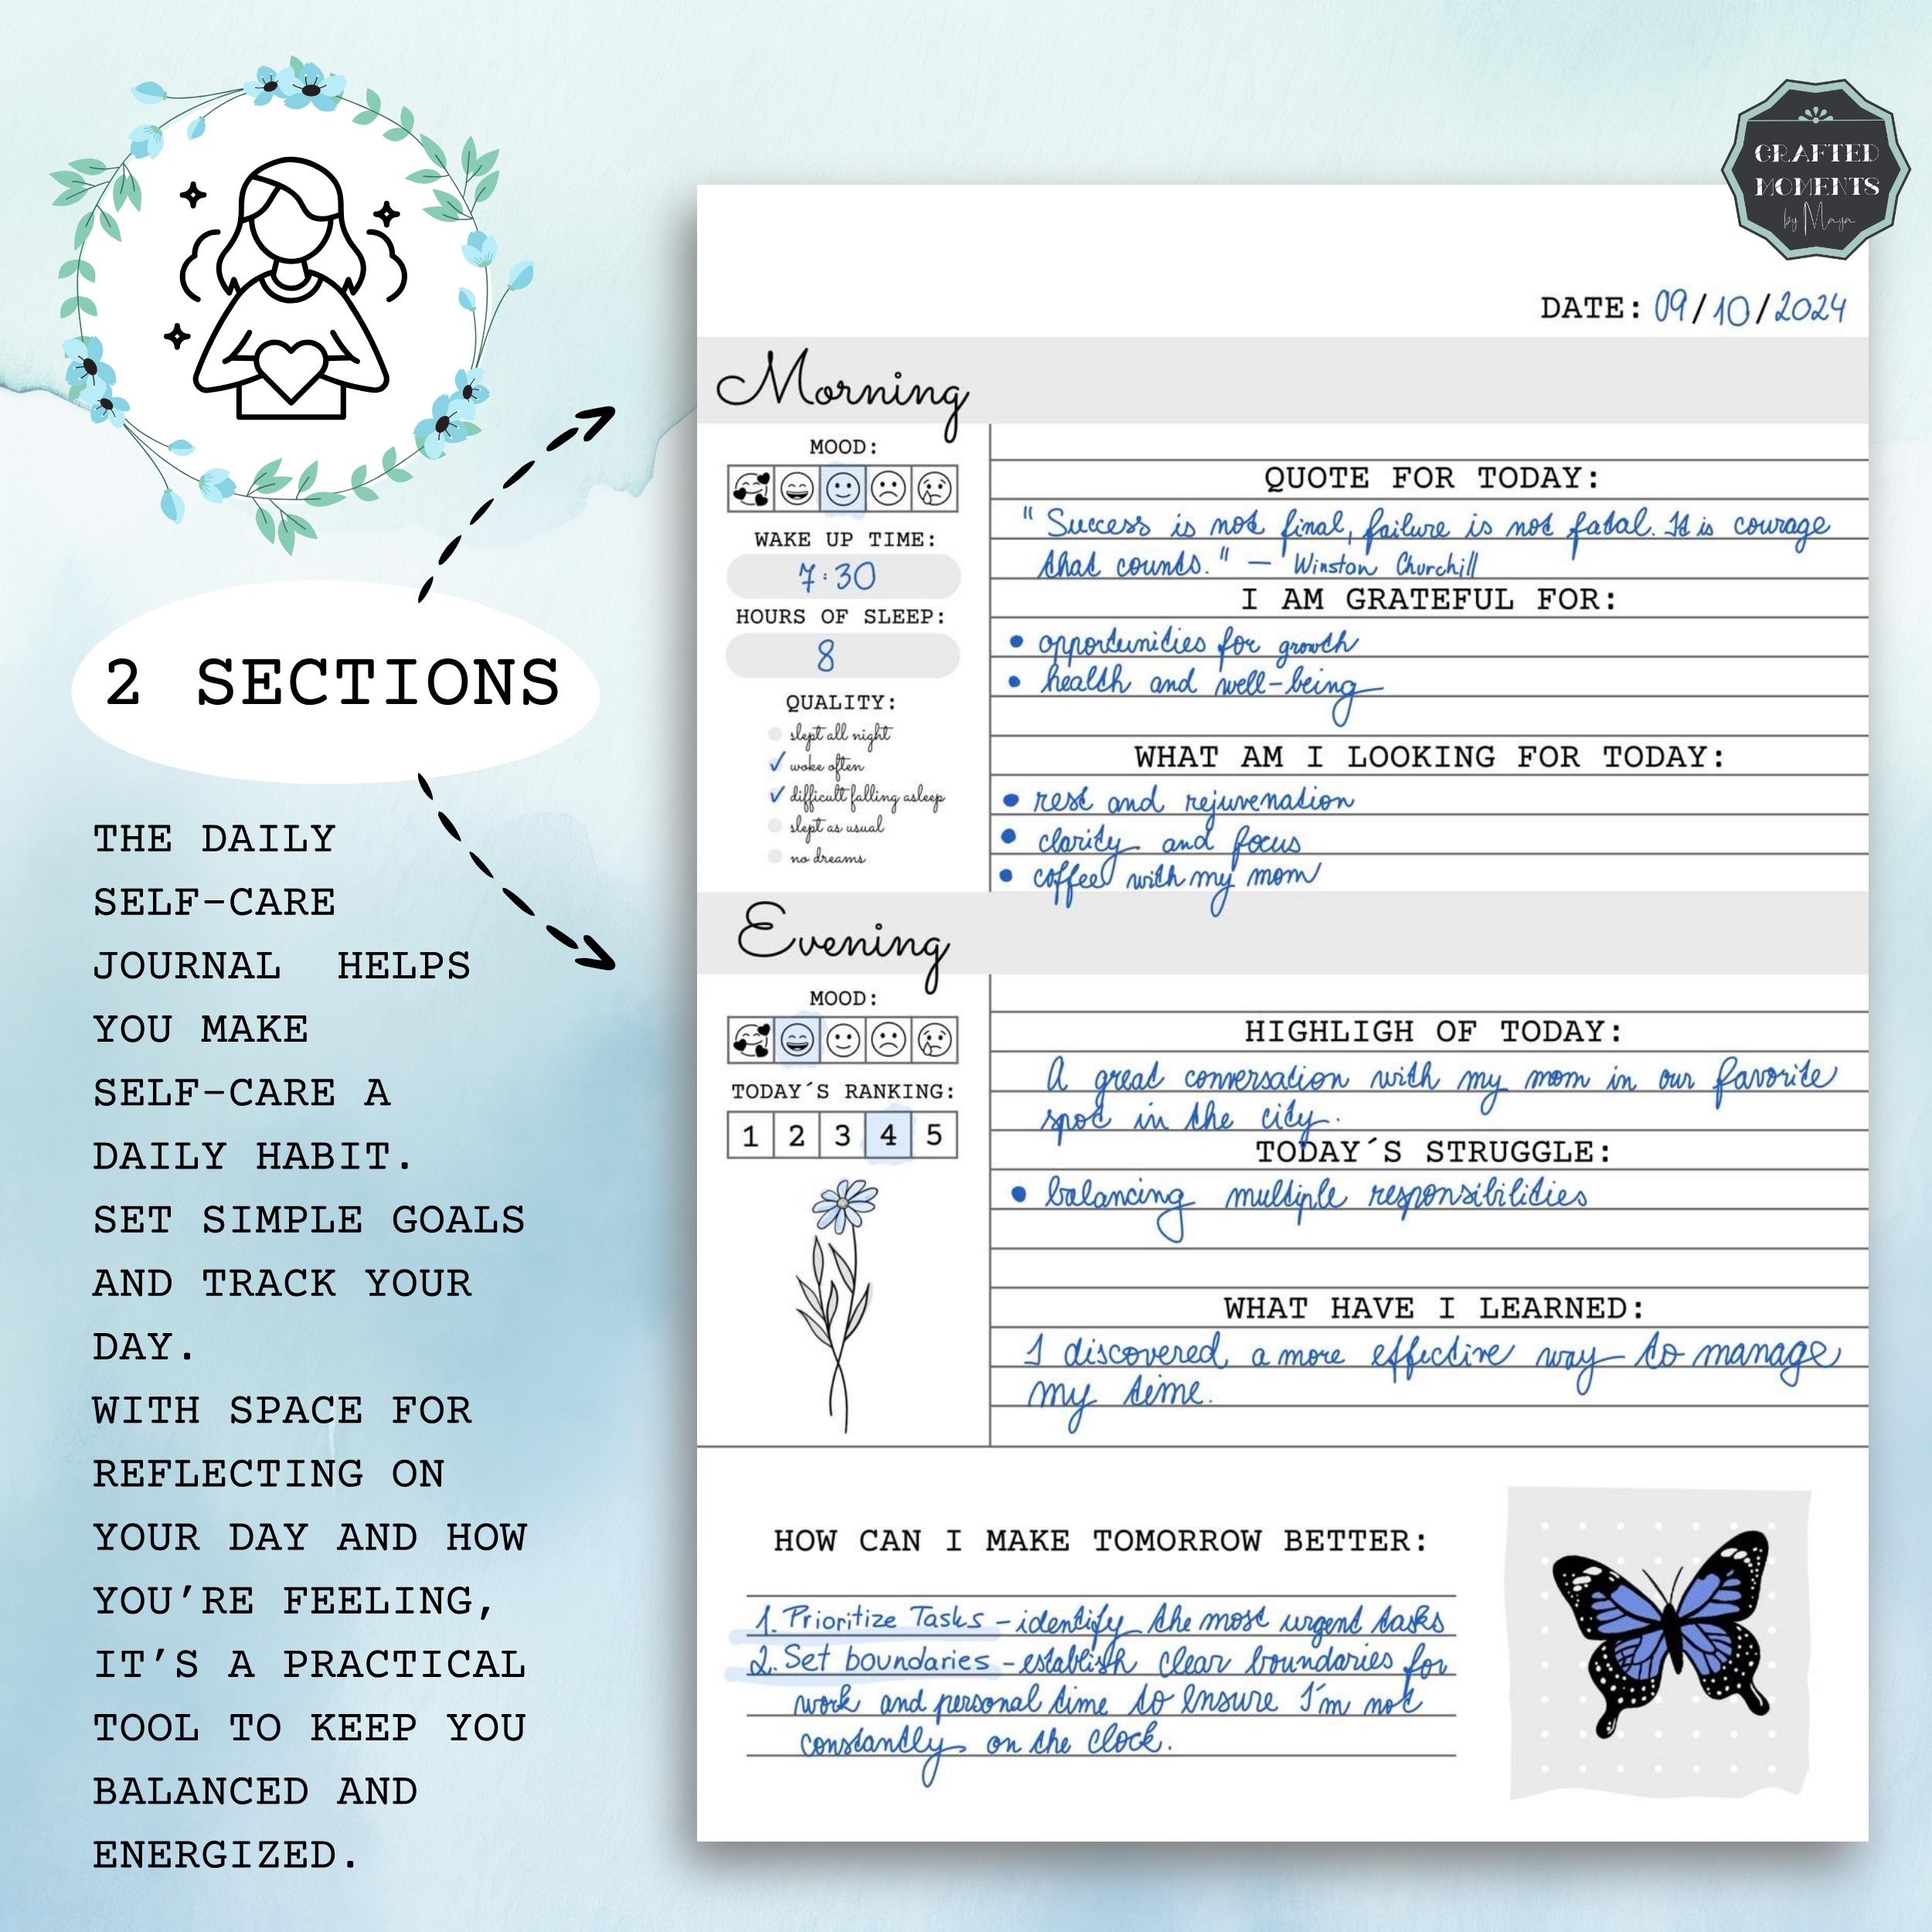 CRAFTED
MOMENTS
by Maya
2 SECTIONS
THE DAILY
SELF-CARE
JOURNAL HELPS
YOU MAKE
SELF-CARE A
DAILY HABIT.
SET SIMPLE GOALS
AND TRACK YOUR
DAY.
WITH SPACE FOR
REFLECTING ON
YOUR DAY AND HOW
YOU'RE FEELING,
IT'S A PRACTICAL
TOOL TO KEEP YOU
BALANCED AND
ENERGIZED.
DATE: 09/10/2024
Morning
MOOD:
WAKE UP TIME:
7:30
HOURS OF SLEEP:
8
QUALITY:
slept all night
✓ woke often
✓ difficult falling asleep
slept as usual
no dreams
QUOTE FOR TODAY:
"Success is not final, failure is not fatal. It is courage
that counts." — Winston Churchill
I AM GRATEFUL FOR:
• opportunities for growth
• health and well-being
WHAT AM I LOOKING FOR TODAY:
• rest and rejuvenation
• clarity and focus
• coffee with my mom
Evening
MOOD:
TODAY´S RANKING:
1 2 3 4 5
HIGHLIGH OF TODAY:
A great conversation with my mom in our favorite
spot in the city.
TODAY´S STRUGGLE:
• balancing multiple responsibilities
WHAT HAVE I LEARNED:
I discovered a more effective way to manage
my time.
HOW CAN I MAKE TOMORROW BETTER:
1. Prioritize Tasks - identify the most urgent tasks
2. Set boundaries - establish clear boundaries for
work and personal time to ensure I'm not
constantly on the clock.